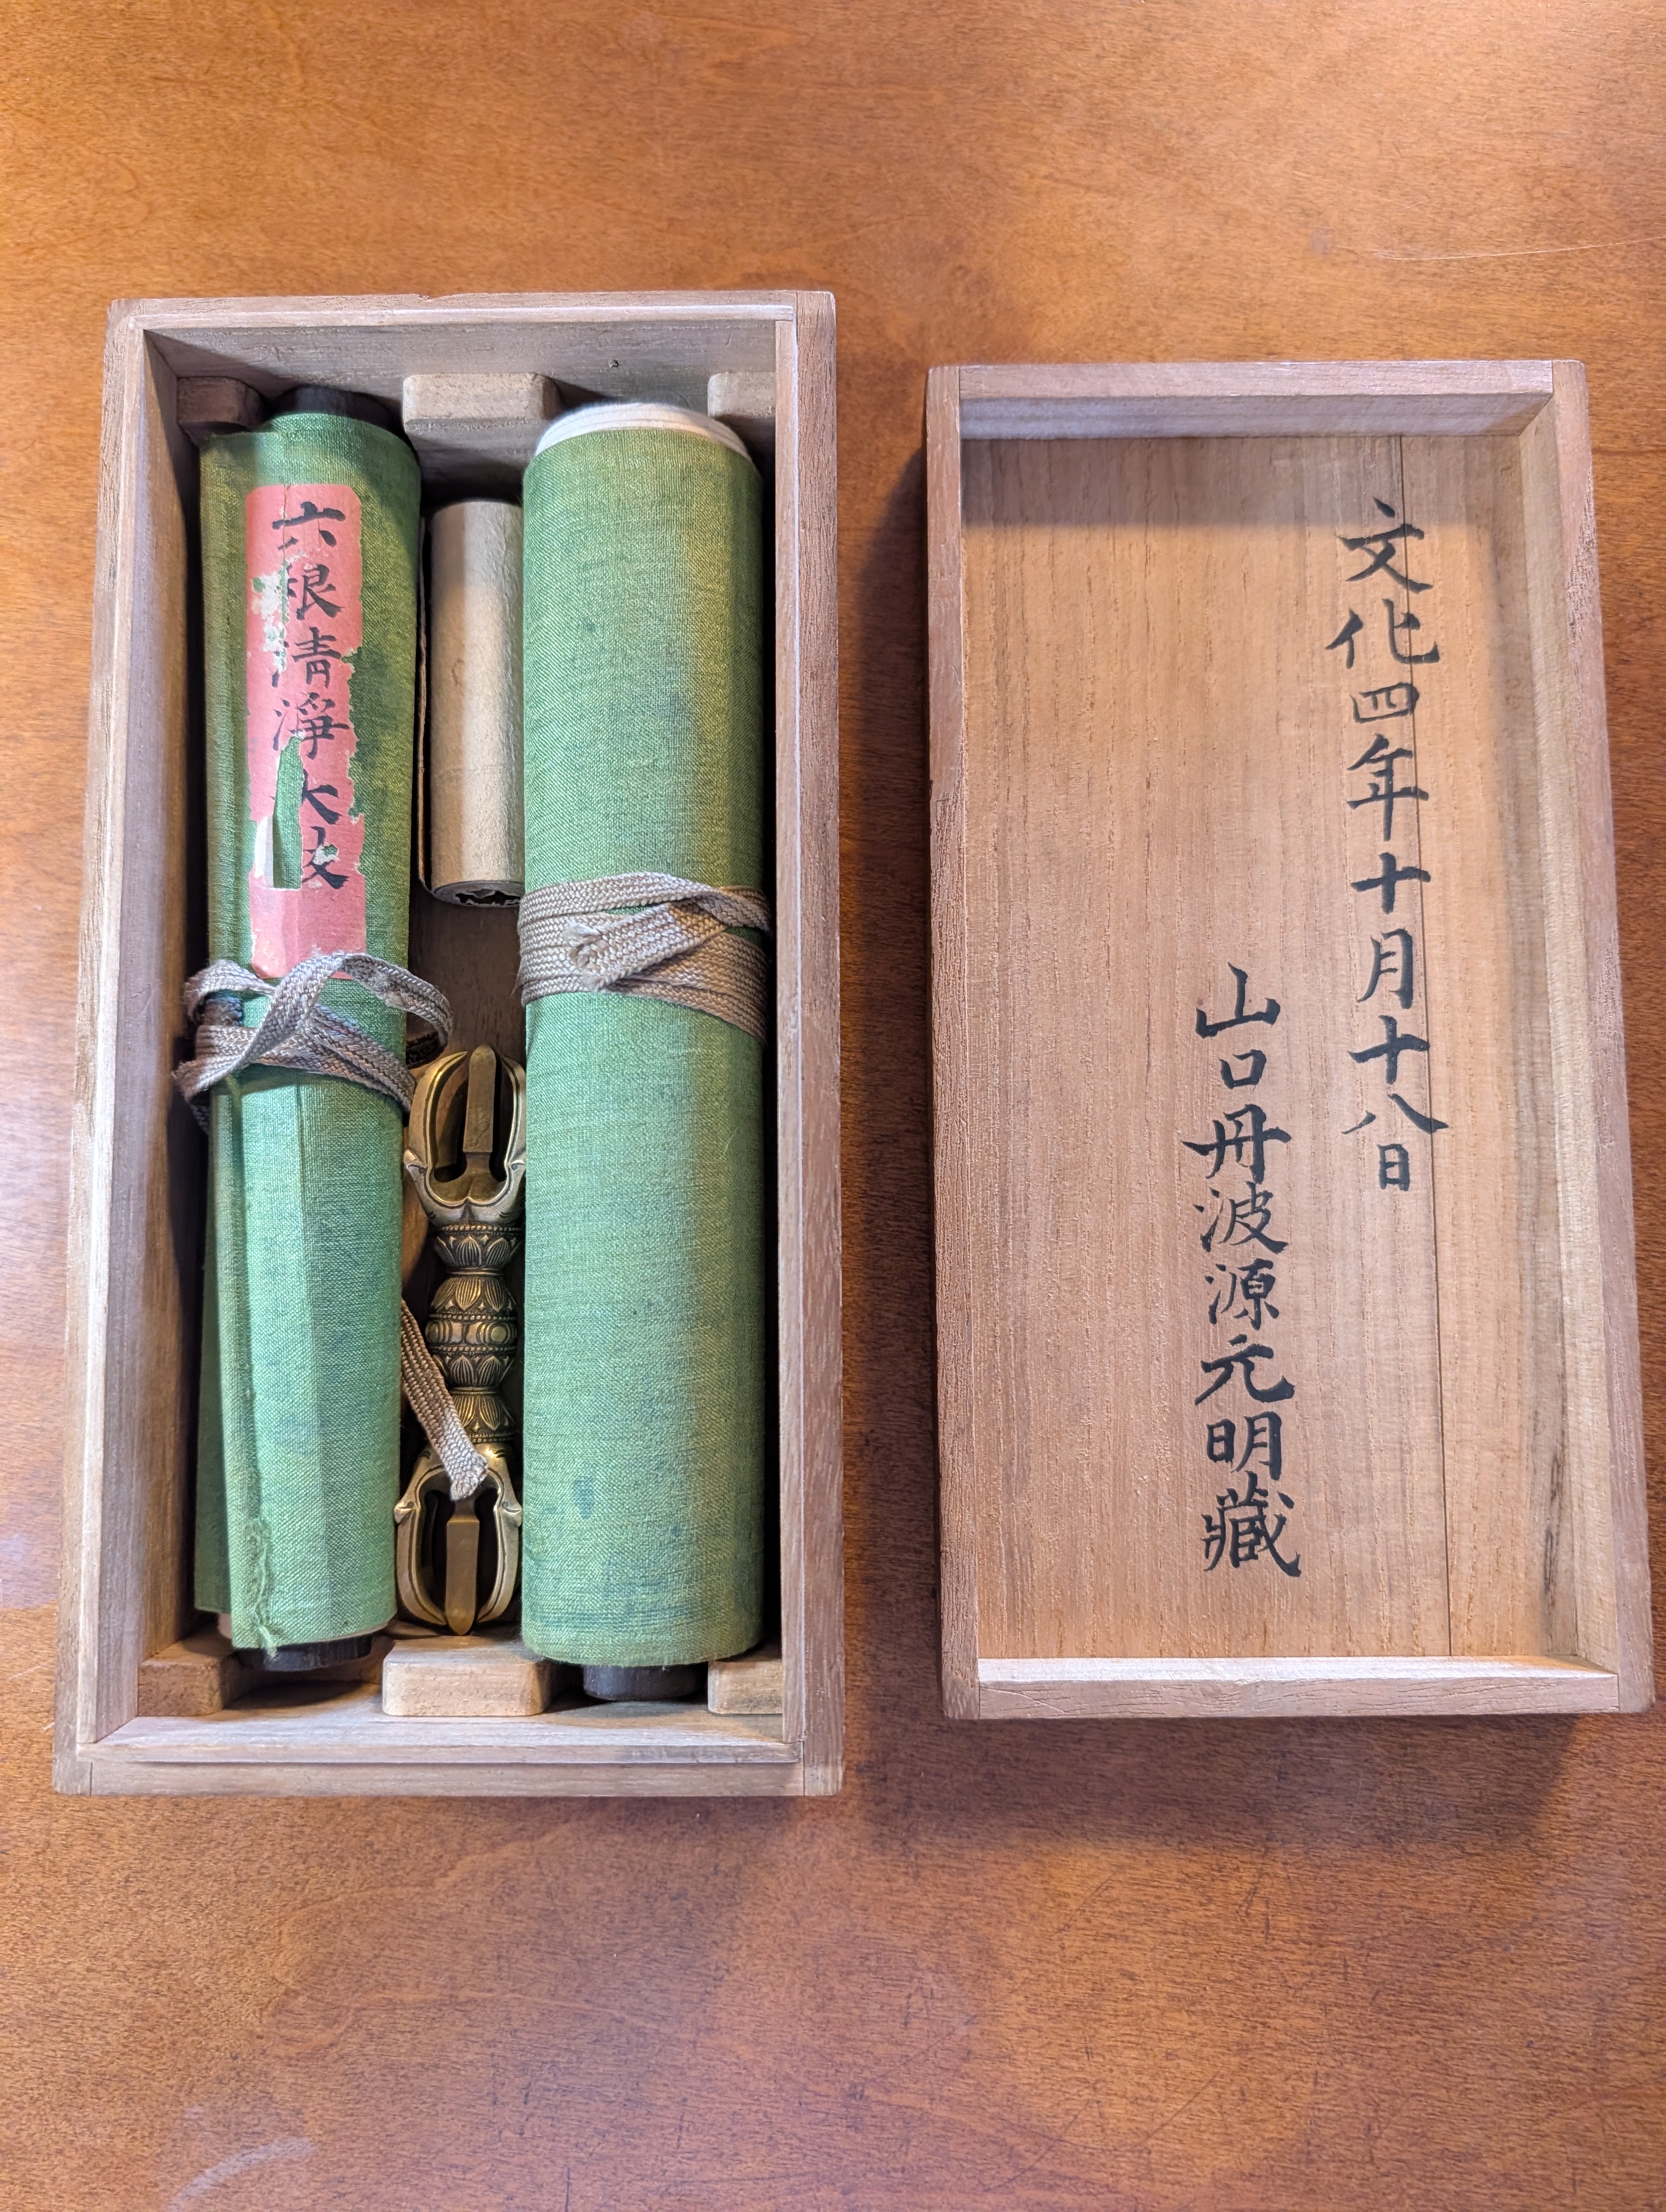 文化四年十月十八日
山口丹波源元明藏
六根清淨大祓